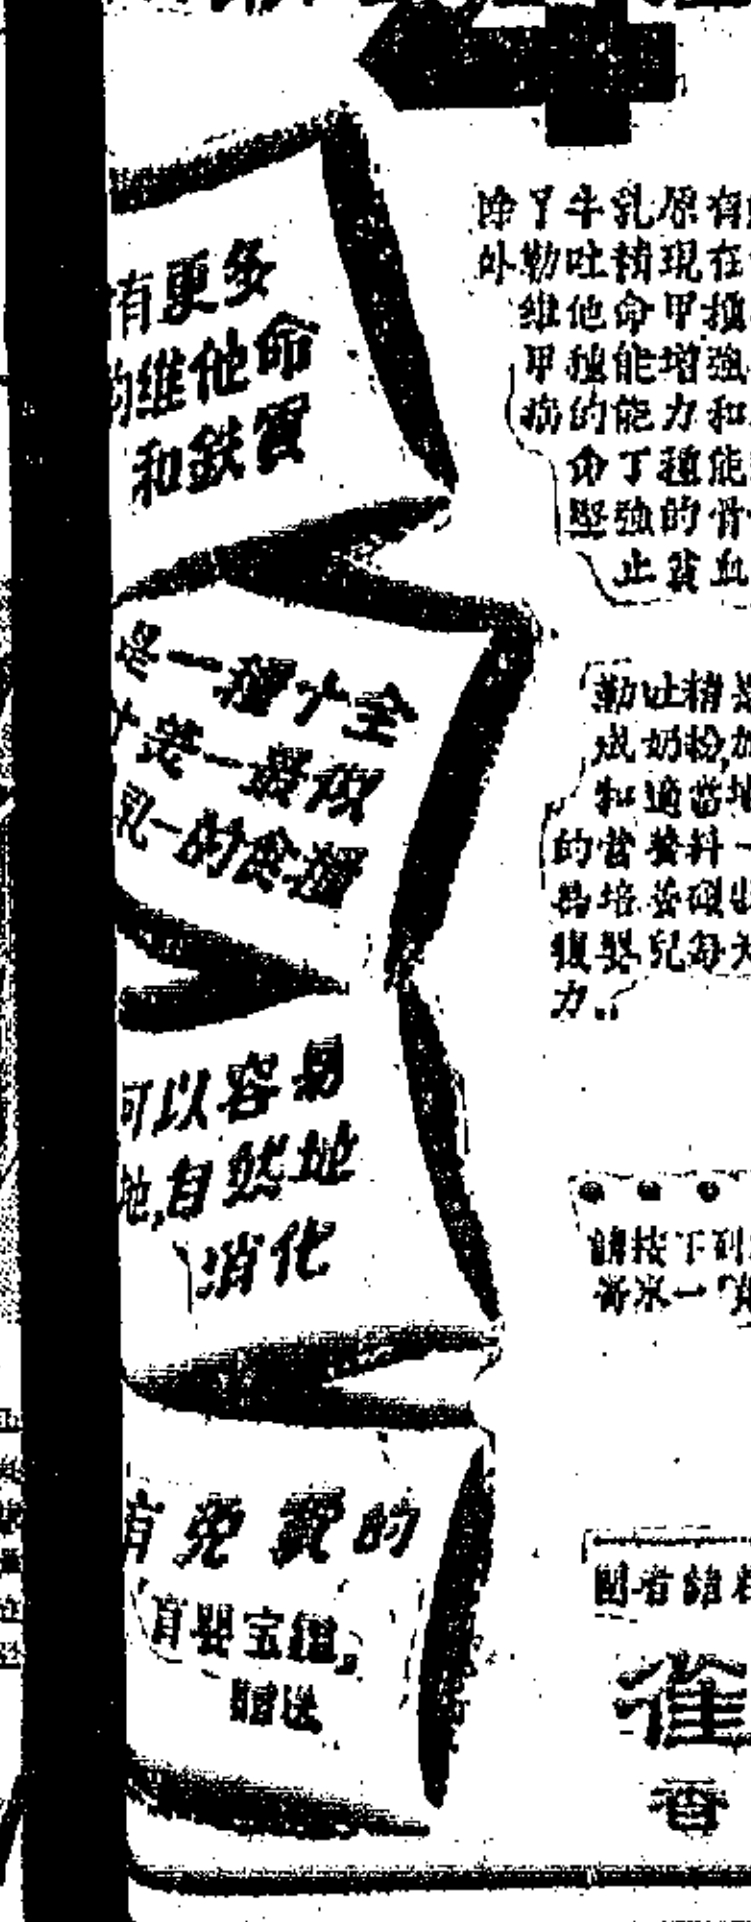 有更多
的維他命
和鉄質
是一種十全
十美一最似
乳一的食糧
可以容易
地,自然地
消化
有免費的
育嬰宝鑑,
贈送
除了牛乳原有
外勒吐精現在
維他命甲種
甲種能增強
病的能力和
命丁種能
堅強的骨
止貧血
勒吐精是
成奶粉,加
和適當地
的營養料一
易培養
嬰兒每天
力.
請按下列
寄來一
雀
香